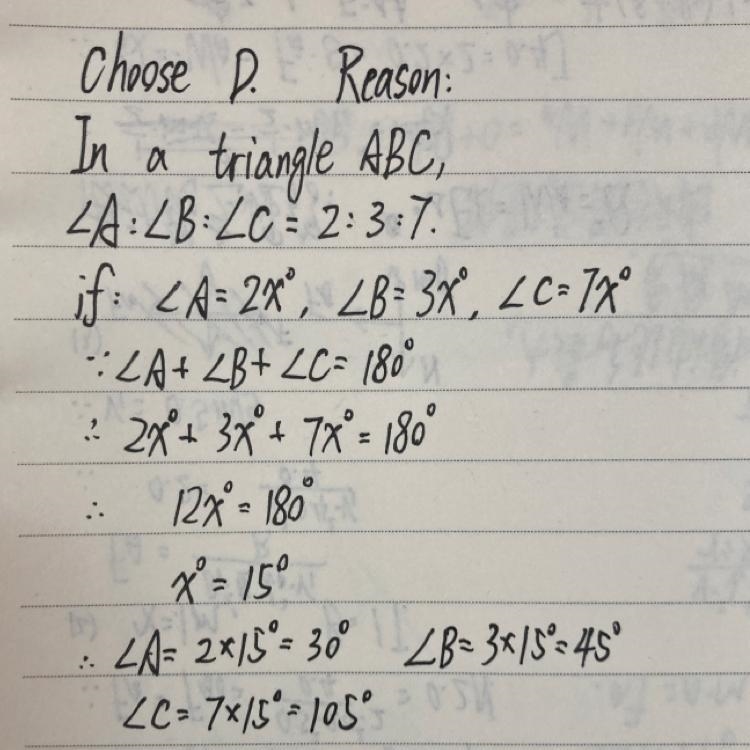 Choose D. Reason:
In a triangle ABC,
∠A:∠B:∠C=2:3:7.
if: ∠A=2x°, ∠B=3x°, ∠C=7x°
∵∠A+∠B+∠C=180°
∴ 2x°+3x°+7x°=180°
∴ 12x°=180°
x°=15°
∴ ∠A=2×15°=30° ∠B=3×15°=45°
∠C=7×15°=105°